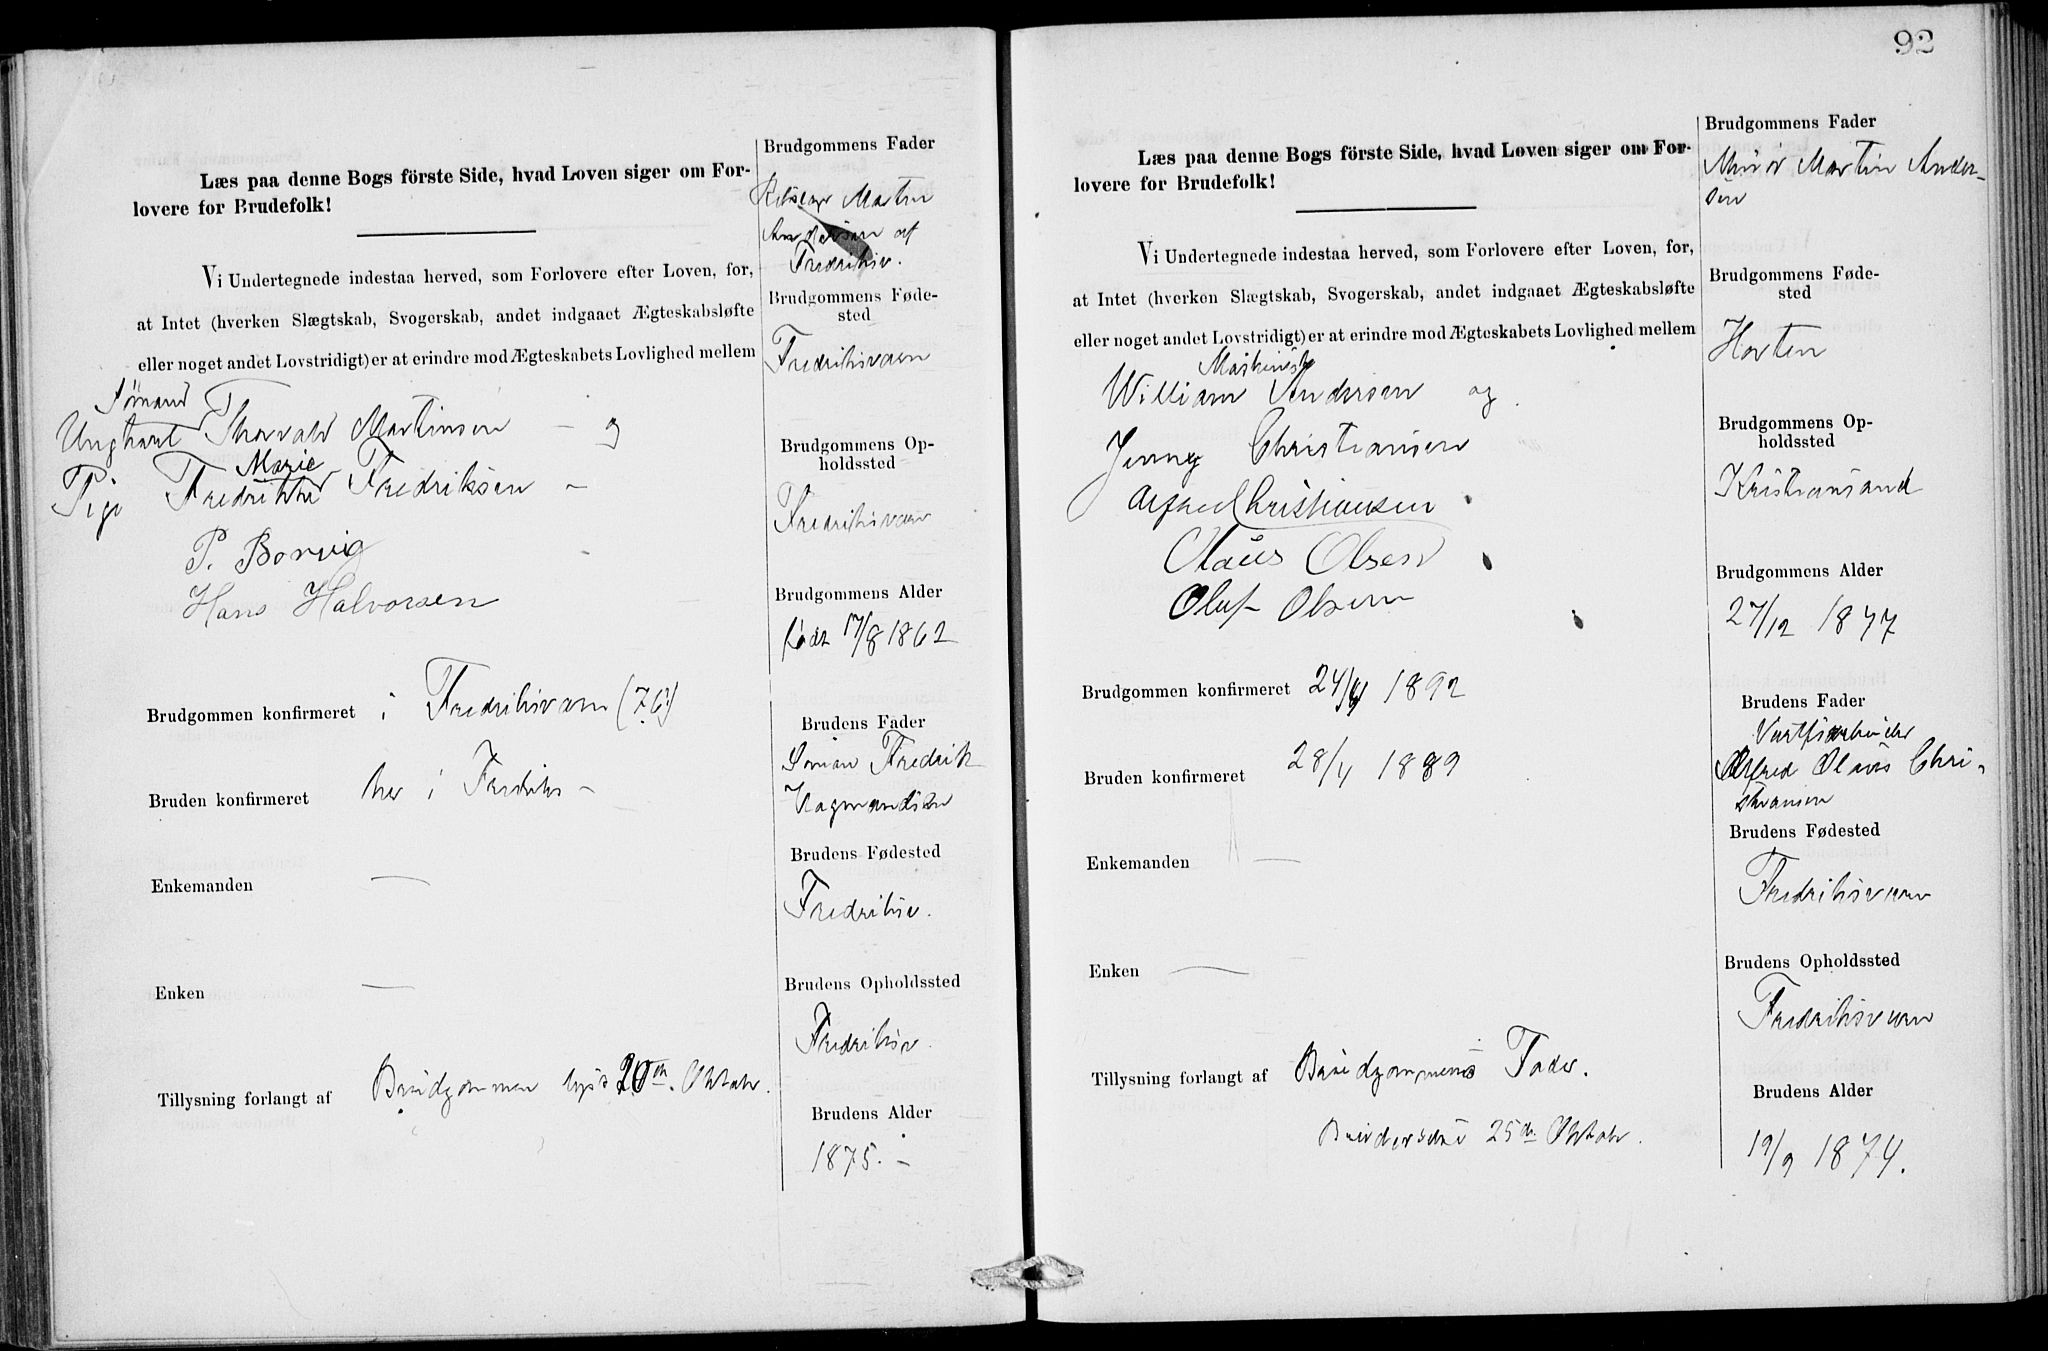 Læs paa denne Bogs förste Side, hvad Loven siger om For-
lovere for Brudefolk!
Vi Undertegnede indestaa herved, som Forlovere efter Loven, for,
at Intet (hverken Slægtskab, Svogerskab, andet indgaaet Ægteskabsløfte
eller noget andet Lovstridigt) er at erindre mod Ægteskabets Lovlighed mellem
Sömand
Ungkarl Thorvald Martinsen - og
Marie
Pige Fredrikke Fredriksen -
P. Borvig
Hans Halvorsen
Brudgommen konfirmeret i Fredriksværn (76?)
Bruden konfirmeret her i Fredriks -
Enkemanden —
Enken —
Tillysning forlangt af Brudgommen lyst 20de. Oktobr.
Brudgommens Fader
Martin
Andersen af
Fredriksv.
Brudgommens Føde-
sted
Fredriksværn
Brudgommens Op-
holdssted
Fredriksværn
Brudgommens Alder
født 17/8 1862
Brudens Fader
Fredrik
Brudens Fødested
Fredriksv.
Brudens Opholdssted
Fredriksv.
Brudens Alder
1875. -
92
Læs paa denne Bogs förste Side, hvad Loven siger om For-
lovere for Brudefolk!
Vi Undertegnede indestaa herved, som Forlovere efter Loven, for,
at Intet (hverken Slægtskab, Svogerskab, andet indgaaet Ægteskabsløfte
eller noget andet Lovstridigt) er at erindre mod Ægteskabets Lovlighed mellem
Maskinist
William Andersen og
Jenny Christiansen
Alfred Christiansen
Olaus Olsen
Oluf Olsen
Brudgommen konfirmeret 24/4 1892
Bruden konfirmeret 28/4 1889
Enkemanden —
Enken —
Tillysning forlangt af Brudgommens Fader.
25de Oktobr.
Brudgommens Fader
Minör Martin Ander-
sen
Brudgommens Føde-
sted
Horten
Brudgommens Op-
holdssted
Kristiansand
Brudgommens Alder
27/12 1877
Brudens Fader
Værftsarbeider
Alfred Olaus Chri-
stiansen
Brudens Fødested
Fredriksværn
Brudens Opholdssted
Fredriksværn
Brudens Alder
19/9 1874.